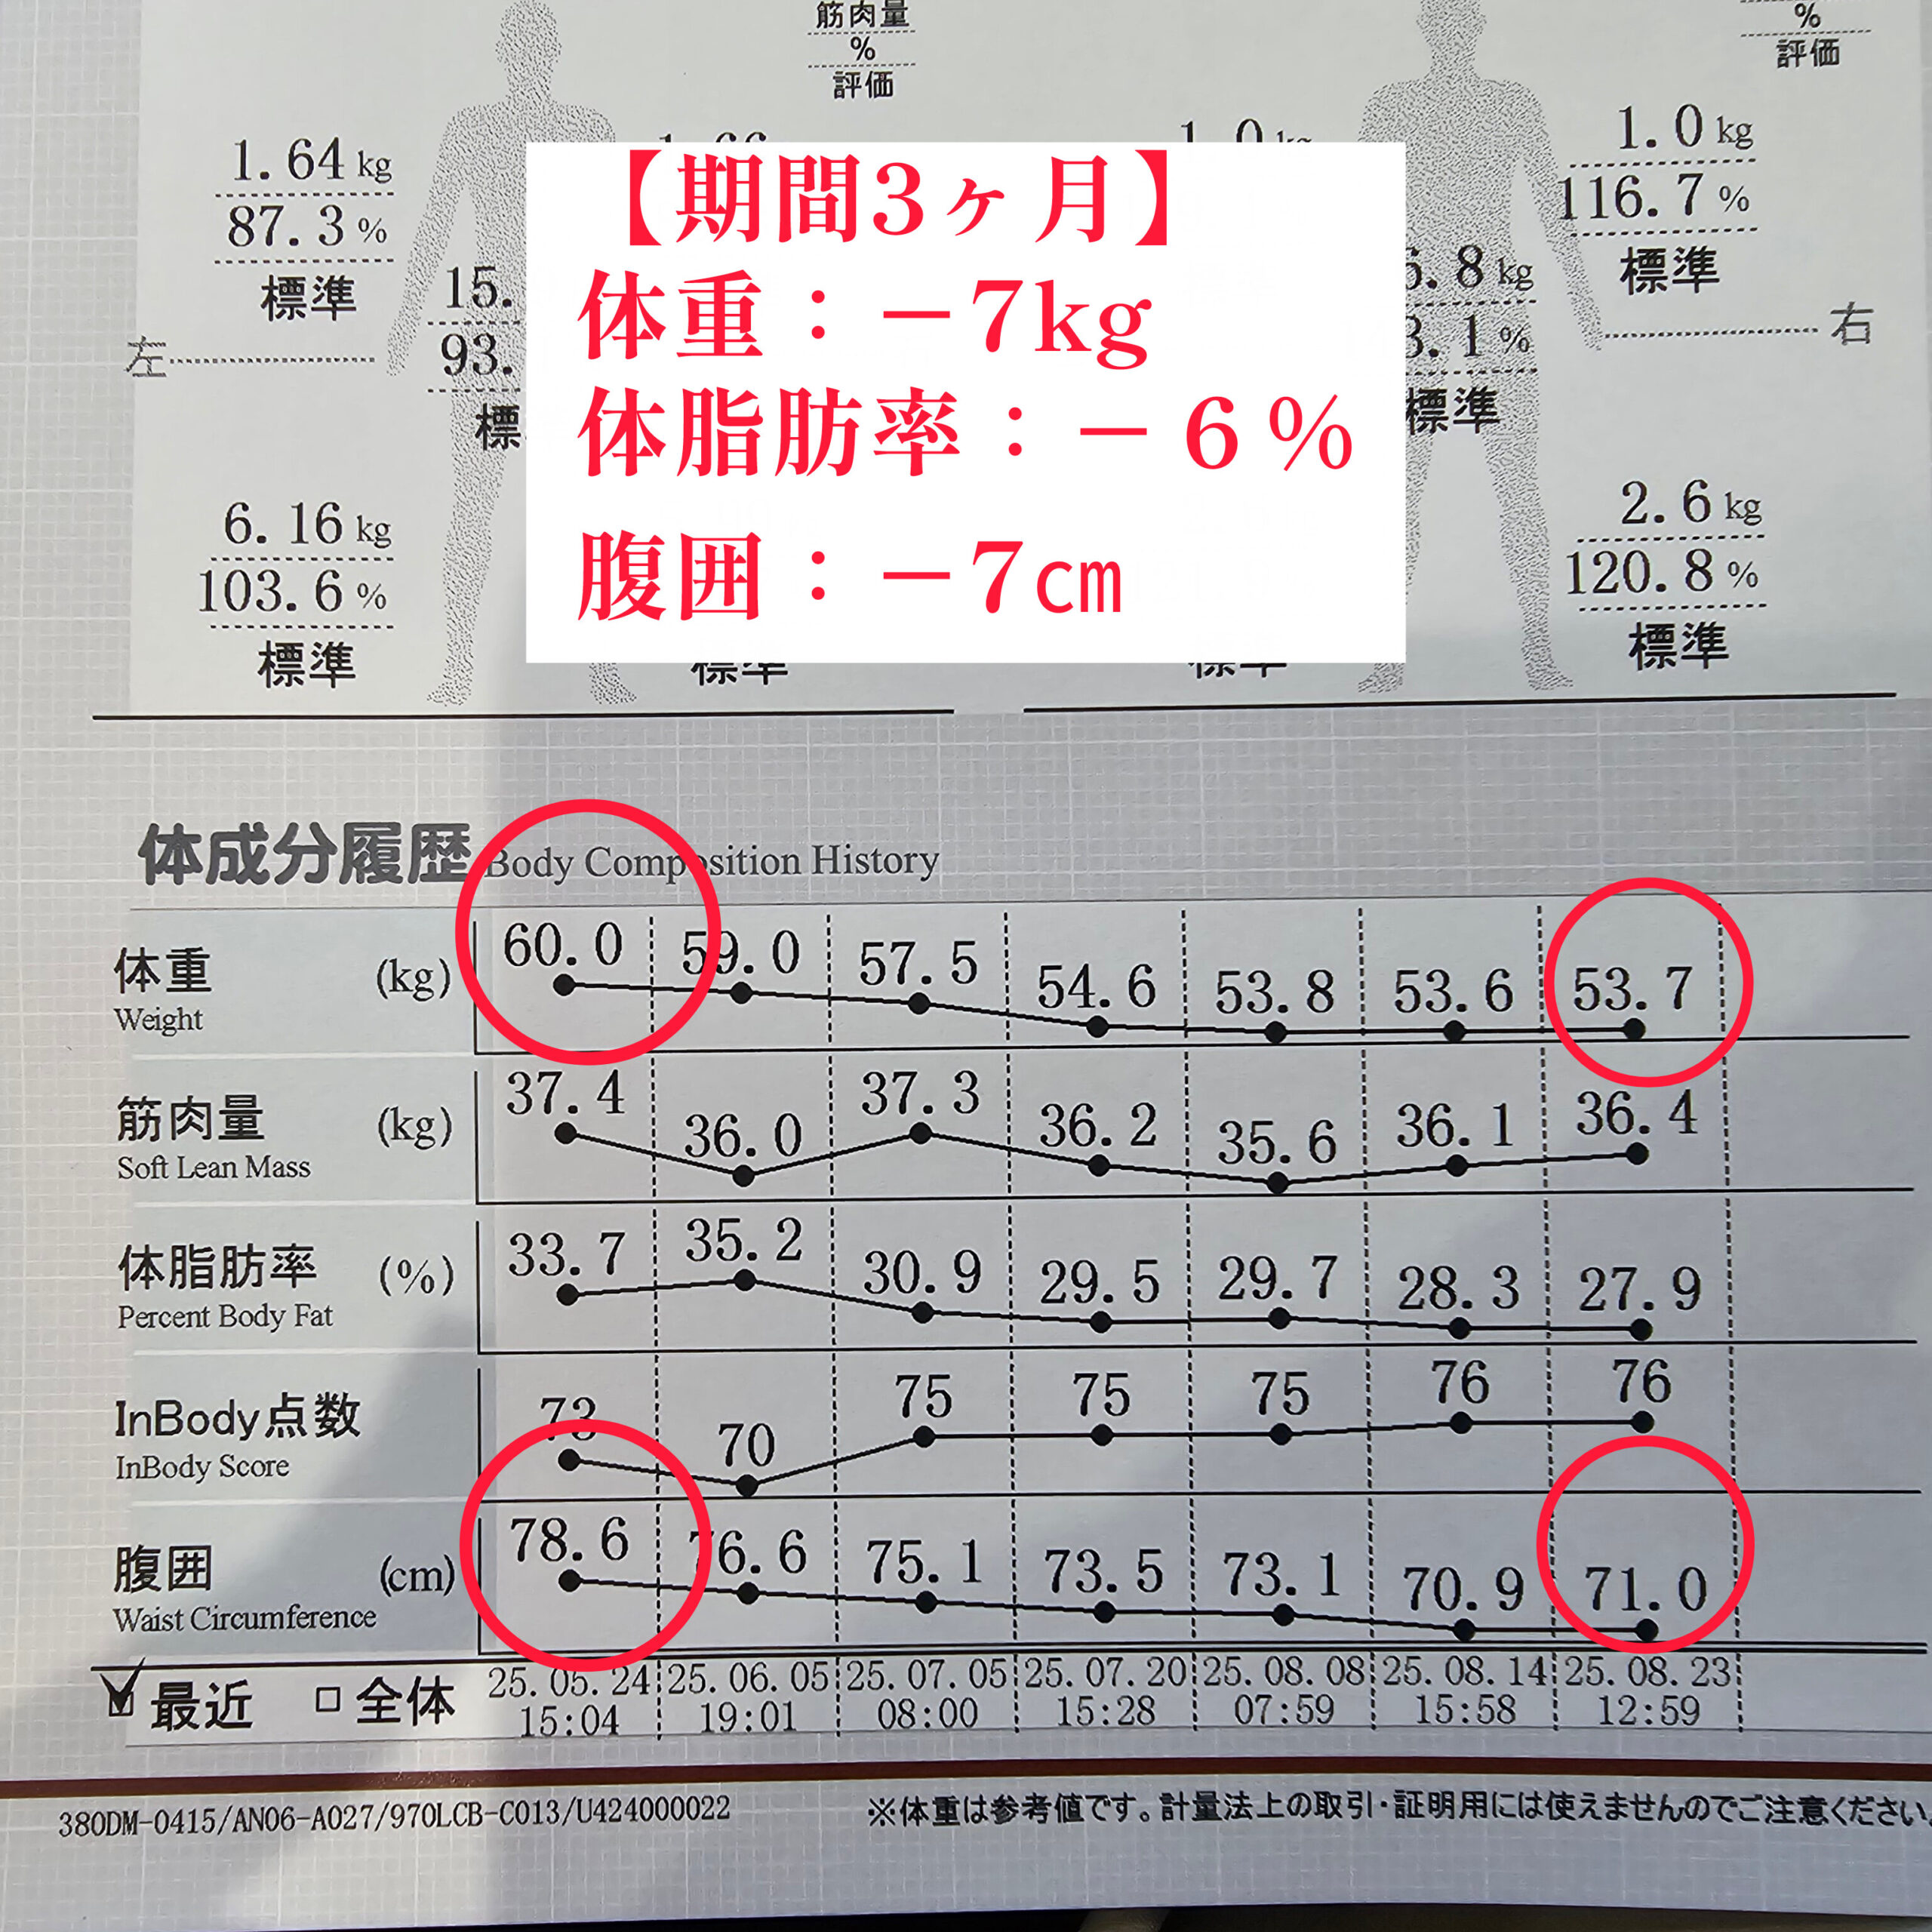 筋肉量
%
%
評価
評価
1.64 kg
1.0 kg
1.0 kg
87.3 %
116.7 %
標準
標準
15.
6.8 kg
93.
3.1 %
左
右
標
標準
【期間3ヶ月】
体重：－7kg
体脂肪率：－６％
腹囲：－7㎝
6.16 kg
2.6 kg
103.6 %
120.8 %
標準
標準
標準
標準
体成分履歴 Body Composition History
体重 (kg) 60.0 59.0 57.5 54.6 53.8 53.6 53.7
Weight
筋肉量 (kg) 37.4 36.0 37.3 36.2 35.6 36.1 36.4
Soft Lean Mass
体脂肪率 (%) 33.7 35.2 30.9 29.5 29.7 28.3 27.9
Percent Body Fat
InBody点数 73 70 75 75 75 76 76
InBody Score
腹囲 (cm) 78.6 76.6 75.1 73.5 73.1 70.9 71.0
Waist Circumference
最近 □全体 25.05.24 25.06.05 25.07.05 25.07.20 25.08.08 25.08.14 25.08.23
15:04 19:01 08:00 15:28 07:59 15:58 12:59
380DM-0415/AN06-A027/970LCB-C013/U424000022
※体重は参考値です。計量法上の取引・証明用には使えませんのでご注意ください。